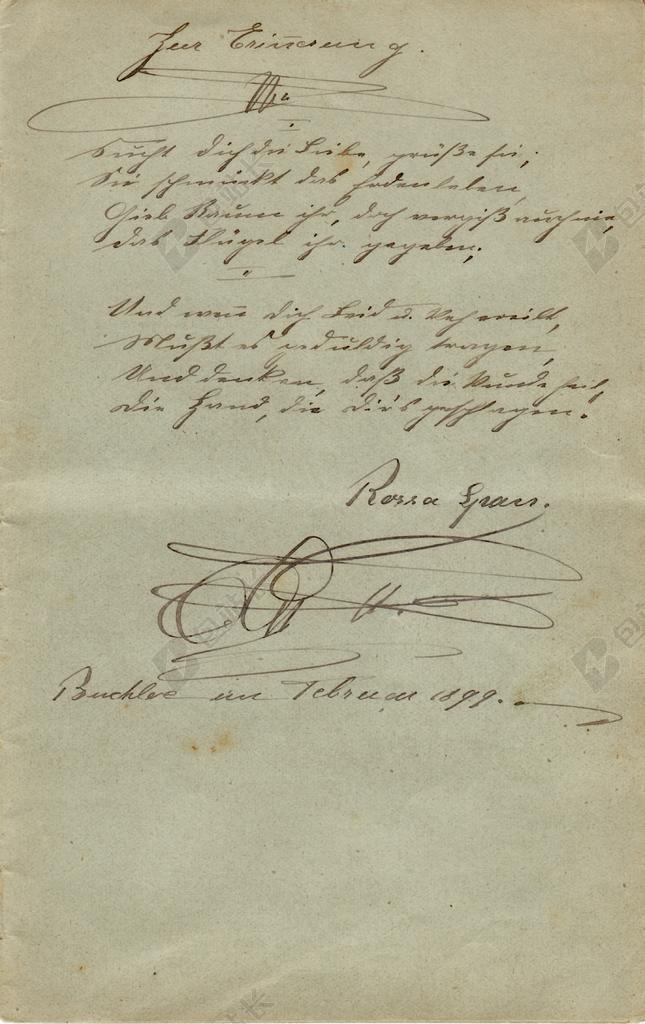 Zur Erinnerung.
Sucht dich die Liebe, grüße sie;
Sie schmückt das Erdenleben,
Gieb Raum ihr, doch vergiß auch nie,
das Flügel ihr gegeben;
Und wenn dich Leid u. Weh ereilt,
Mußt es geduldig tragen,
Und denken, daß die Wunde heilt,
Die Hand, die dir's geschlagen.
Rossa
Buchloe im Februar 1899.